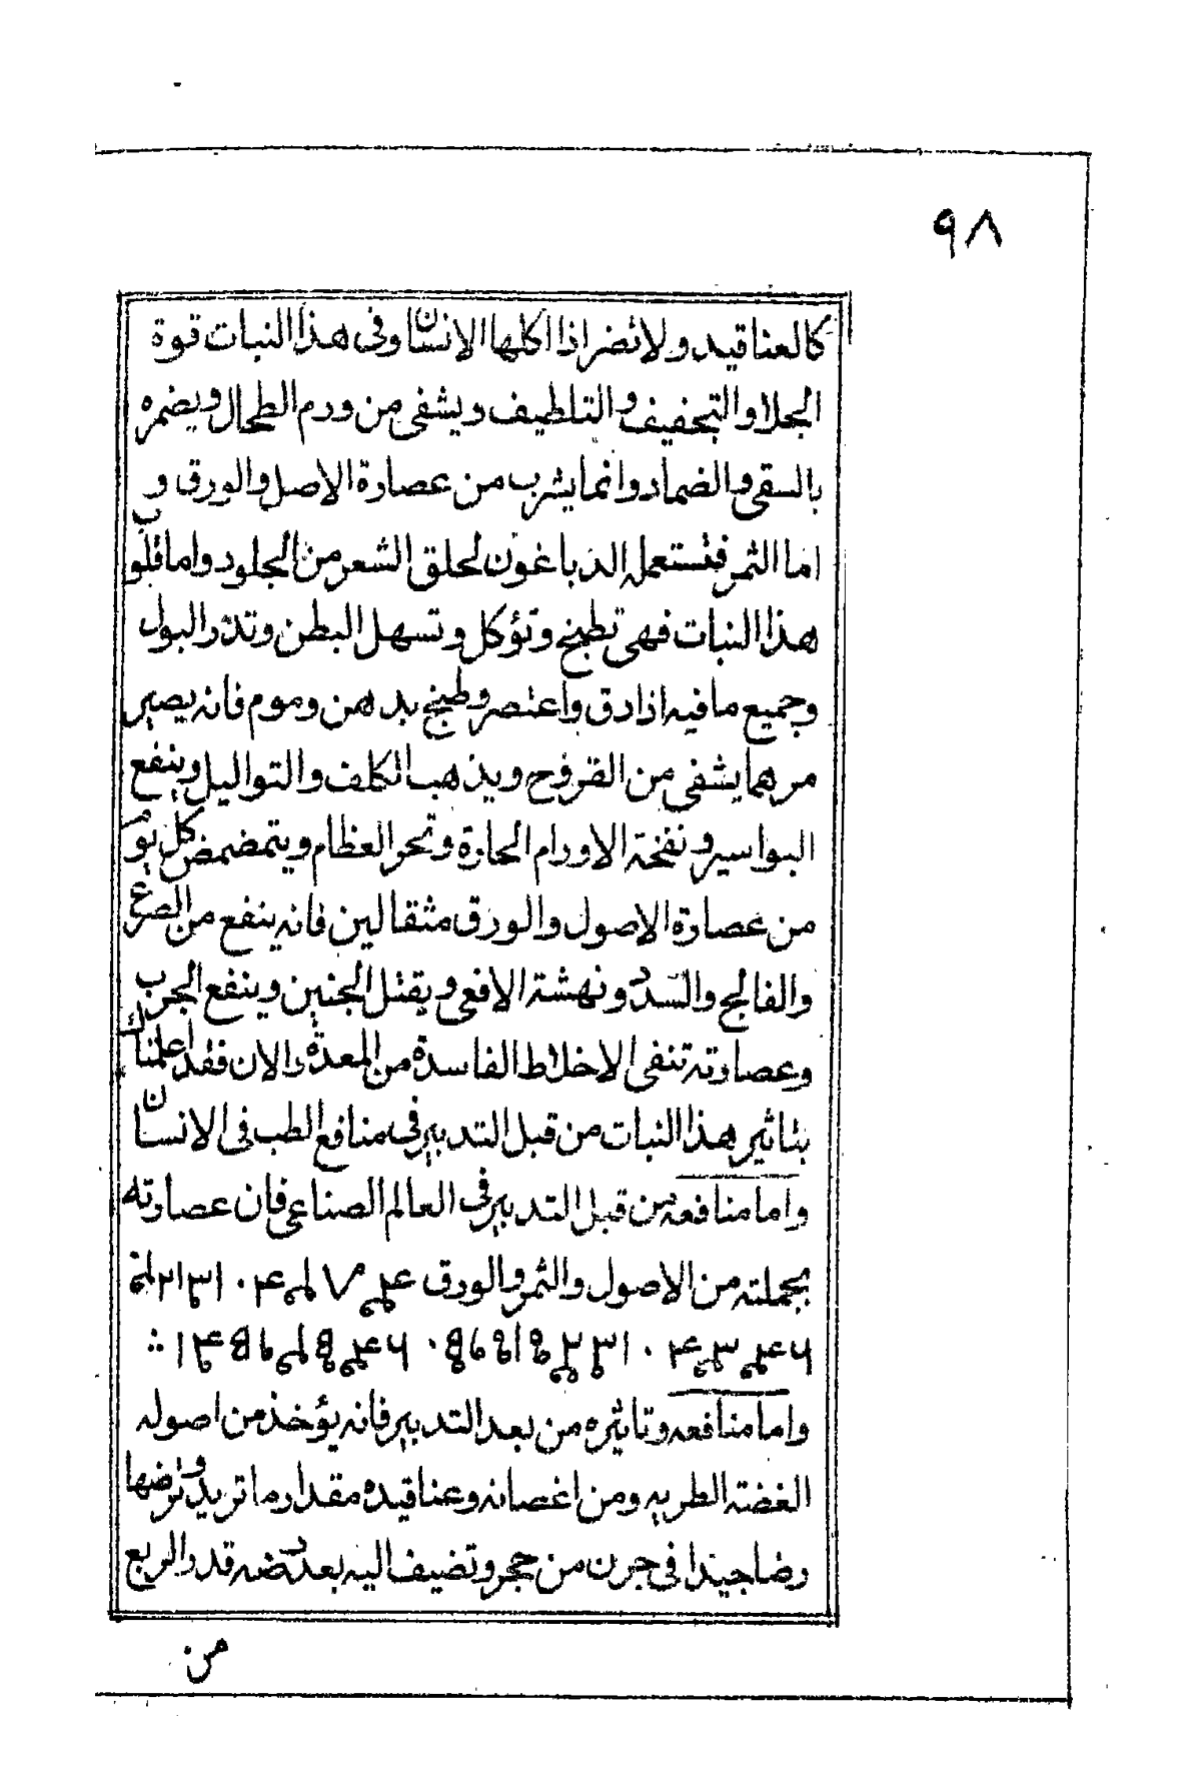 ٩٨
كالعناقيد ولا تضر اذا اكلها الانسان وفى هذا النبات قوة
الجلا والتجفيف والتلطيف ويشفى من ورم الطحال ويضمره
بالسقى والضماد وانما يشرب من عصارة الاصل والورق و
اما الثمر فتستعمله الدباغون لحلق الشعر من الجلود واما قلوب
هذا النبات فهى تطبخ وتؤكل وتسهل البطن وتدر البول
وجميع ما فيه اذا دق واعتصر وطبخ بدهن وموم فانه يصير
مرهما يشفى من القروح ويذهب الكلف والتواليل وينفع
البواسير ونفخة الاورام الحارة وتحر العظام ويتمضمض كل يوم
من عصارة الاصول والورق مثقالين فانه ينفع من الصرع
والفالج والسدد ونهشة الافعى ويقتل الجنين وينفع الجرب
وعصارته تنفى الاخلاط الفاسدة من المعدة والان فقد اعلمناك
بتاثير هذا النبات من قبل التدبير فى منافع الطب فى الانسان
واما منافعه من قبل التدبير فى العالم الصناعى فان عصارته
بجملته من الاصول والثمر والورق
واما منافعه وتاثيره من بعد التدبير فانه يؤخذ من اصوله
الغضة الطريه ومن اغصانه وعناقيده مقدار ما تريد وترضها
رضا جيدا فى جرن من حجر وتضيف اليه بعد رضه قدر الربع
من